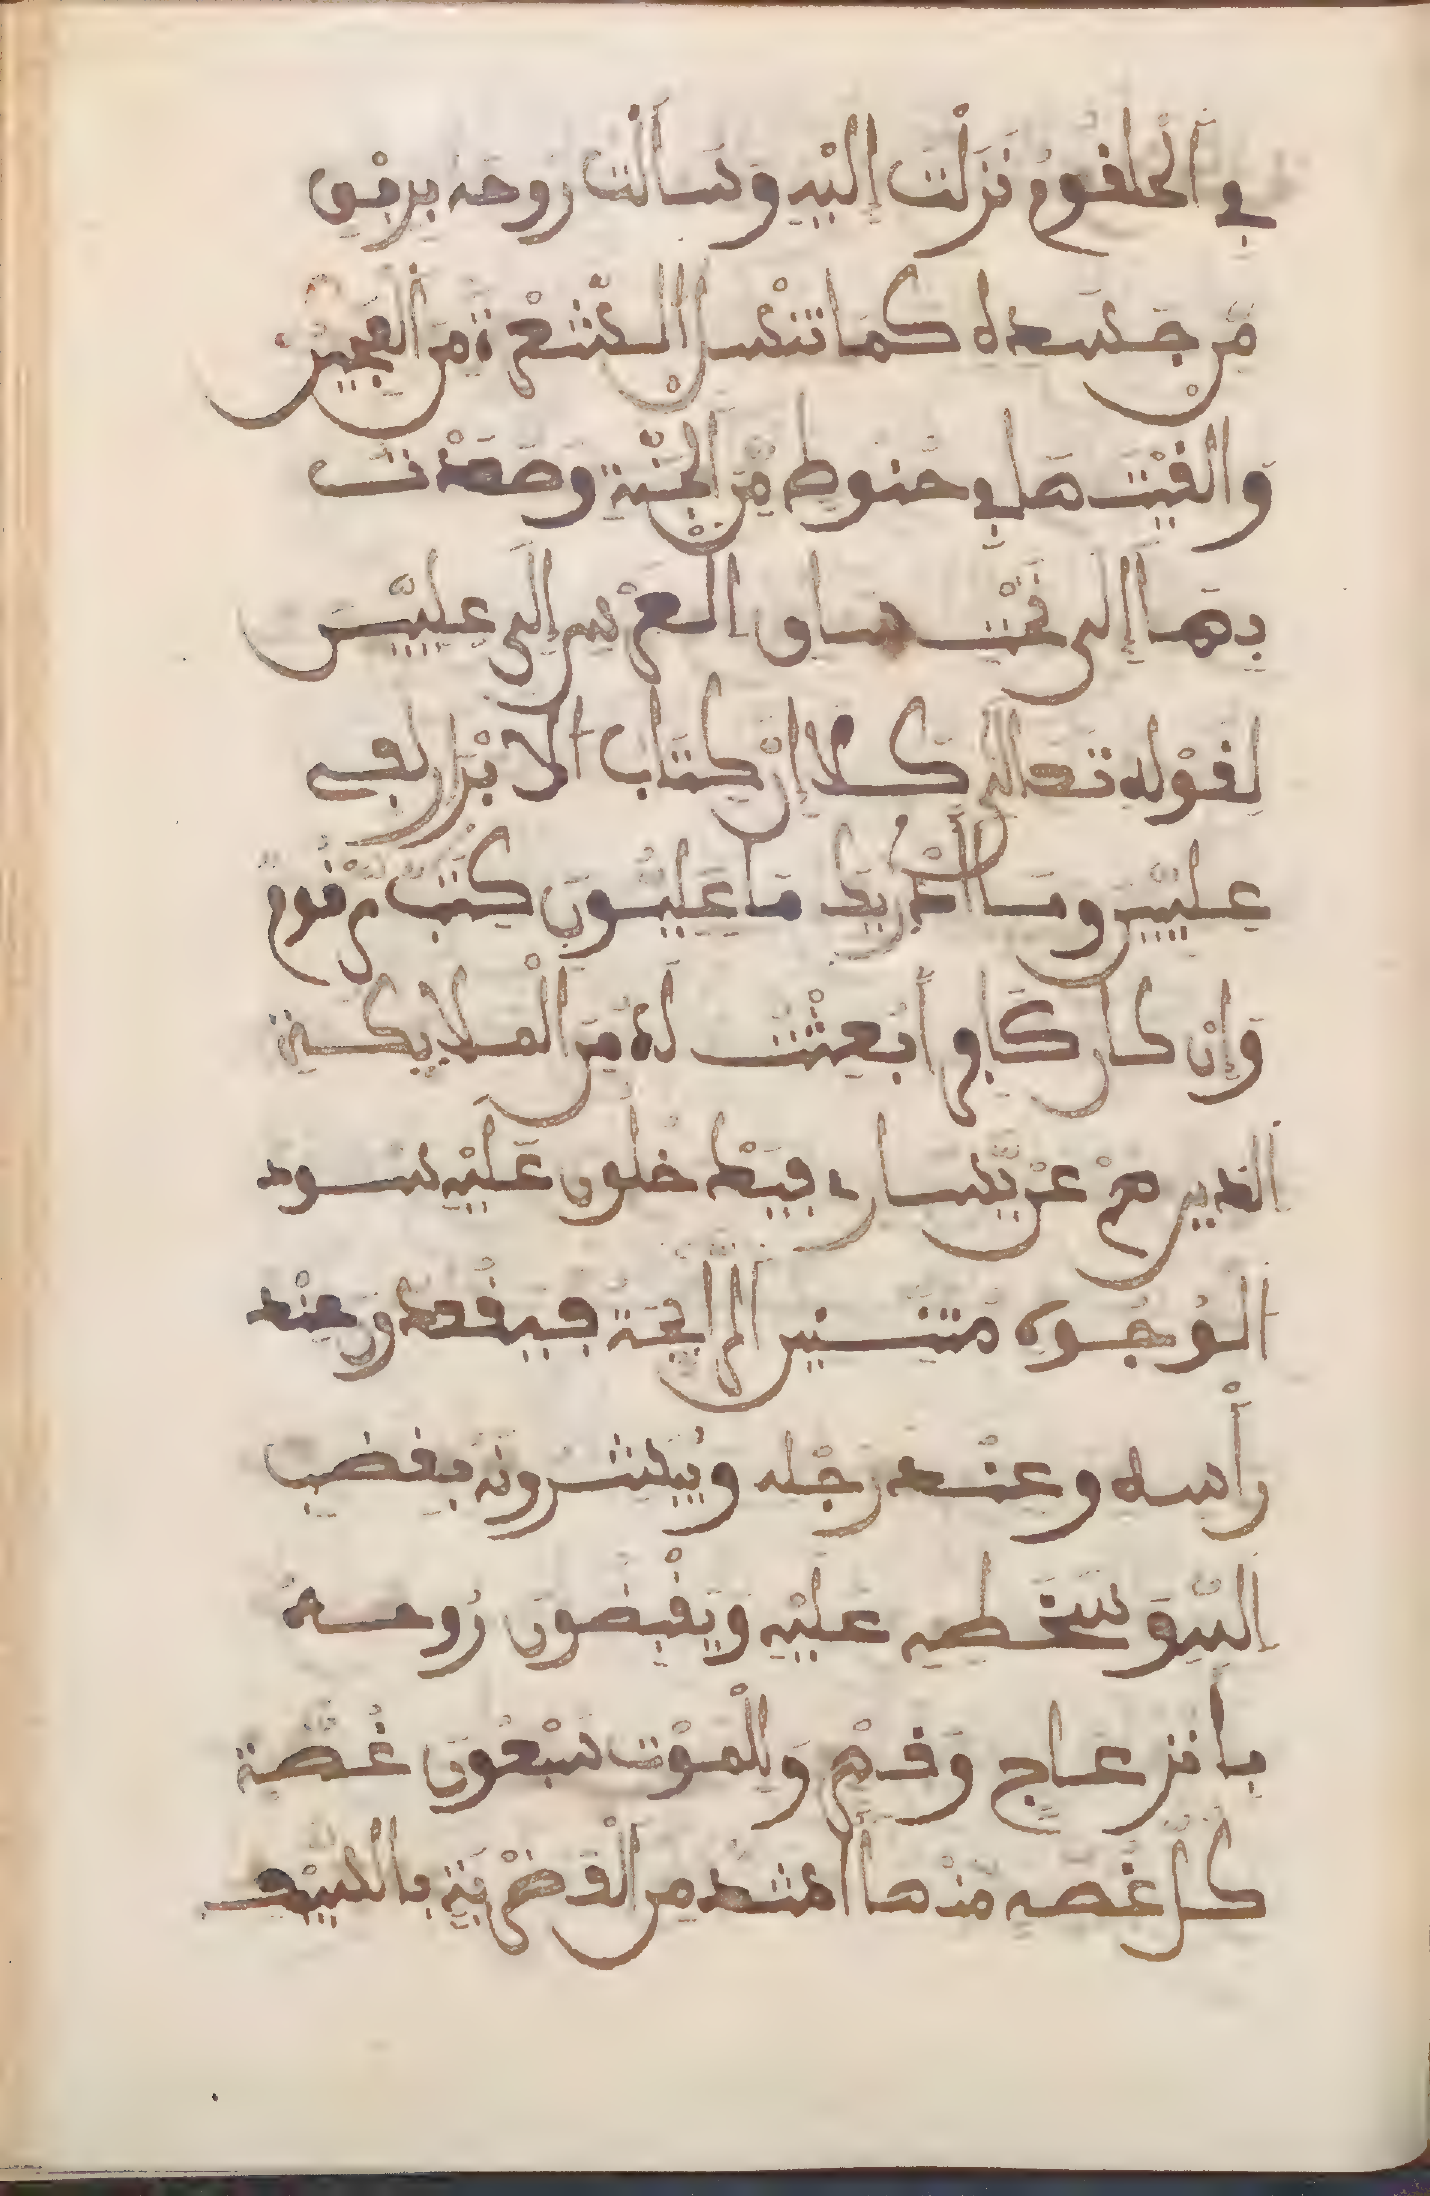 في الْحلقوم نزلت إليه وسالت روحه برفق
من جسده كما تنسل الشعرة من العجين
والقيت ها في حنوط من الجنة وصعدت
بها إلى تحت ساق العرش إلى عليين
لقوله تعالى كلا إن كتاب الابرار لفي
عليين وما أدريك ما عليون كتب مرقوم
وإن كان كافرا بعثت له من الملايكة
الذين هم عن يساره فيدخلون عليه سود
الوجوه متنين الرايحة فيقعدون عند
رأسه وعند رجله ويبشرونه بغضب
الله وسخطه عليه ويقبضون روحه
بانزعاج وقهر وللموت سبعون غصة
كل غصه منها أشد من الف ضربة بالسيف